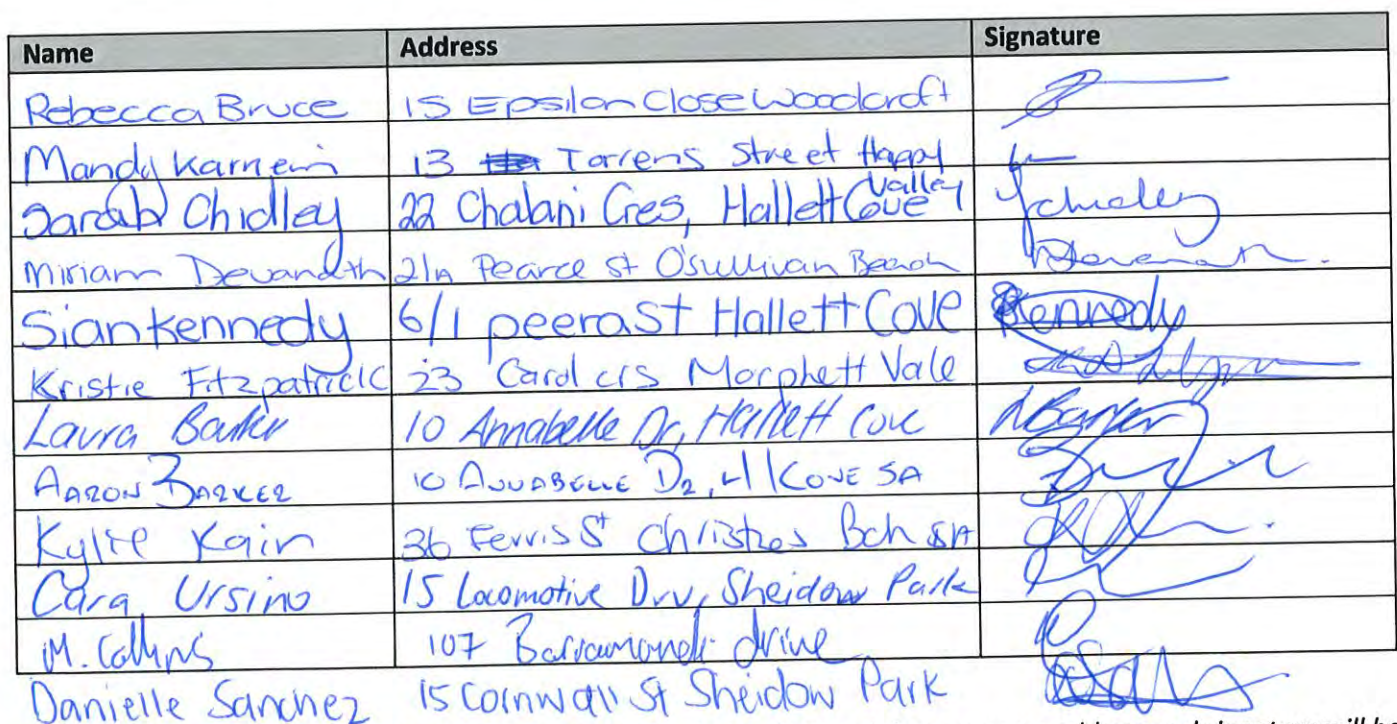 Name Address Signature
Rebecca Bruce 15 Epsilon Close Woodcroft
Mandy Karnein 13 Torrens Street Happy Valley
Sarah Chidley 22 Chalani Cres, Hallett Cove
Miriam Devanath 21A Pearce st O'Sullivan Beach
Sian Kennedy 6/1 peera St Hallett Cove Kennedy
Kristie Fitzpatrick 23 Carol crs Morphett Vale
Laura Barker 10 Annabelle Dr, Hallett Cove LBarker
AARON BARKER 10 ANNABELLE DR, H/COVE SA
Kylie Kain 36 Ferris St Christies Bch SA
Cara Ursino 15 Locomotive Drv, Sheidow Park
M. Collins 107 Barramundi drive
Danielle Sanchez 15 Cornwall St Sheidow Park